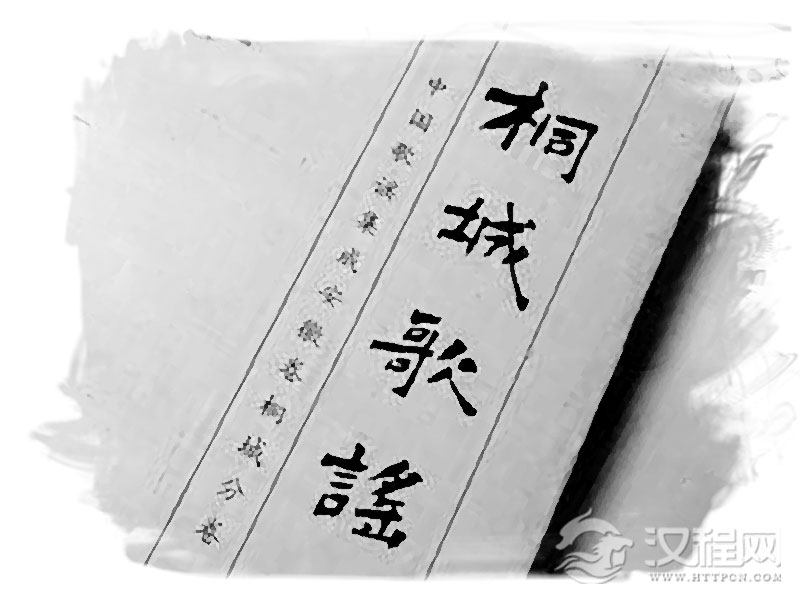 桐城歌謠
中国歌谣集成安徽卷桐城分卷
汉程网
WWW.HTTPCN.COM